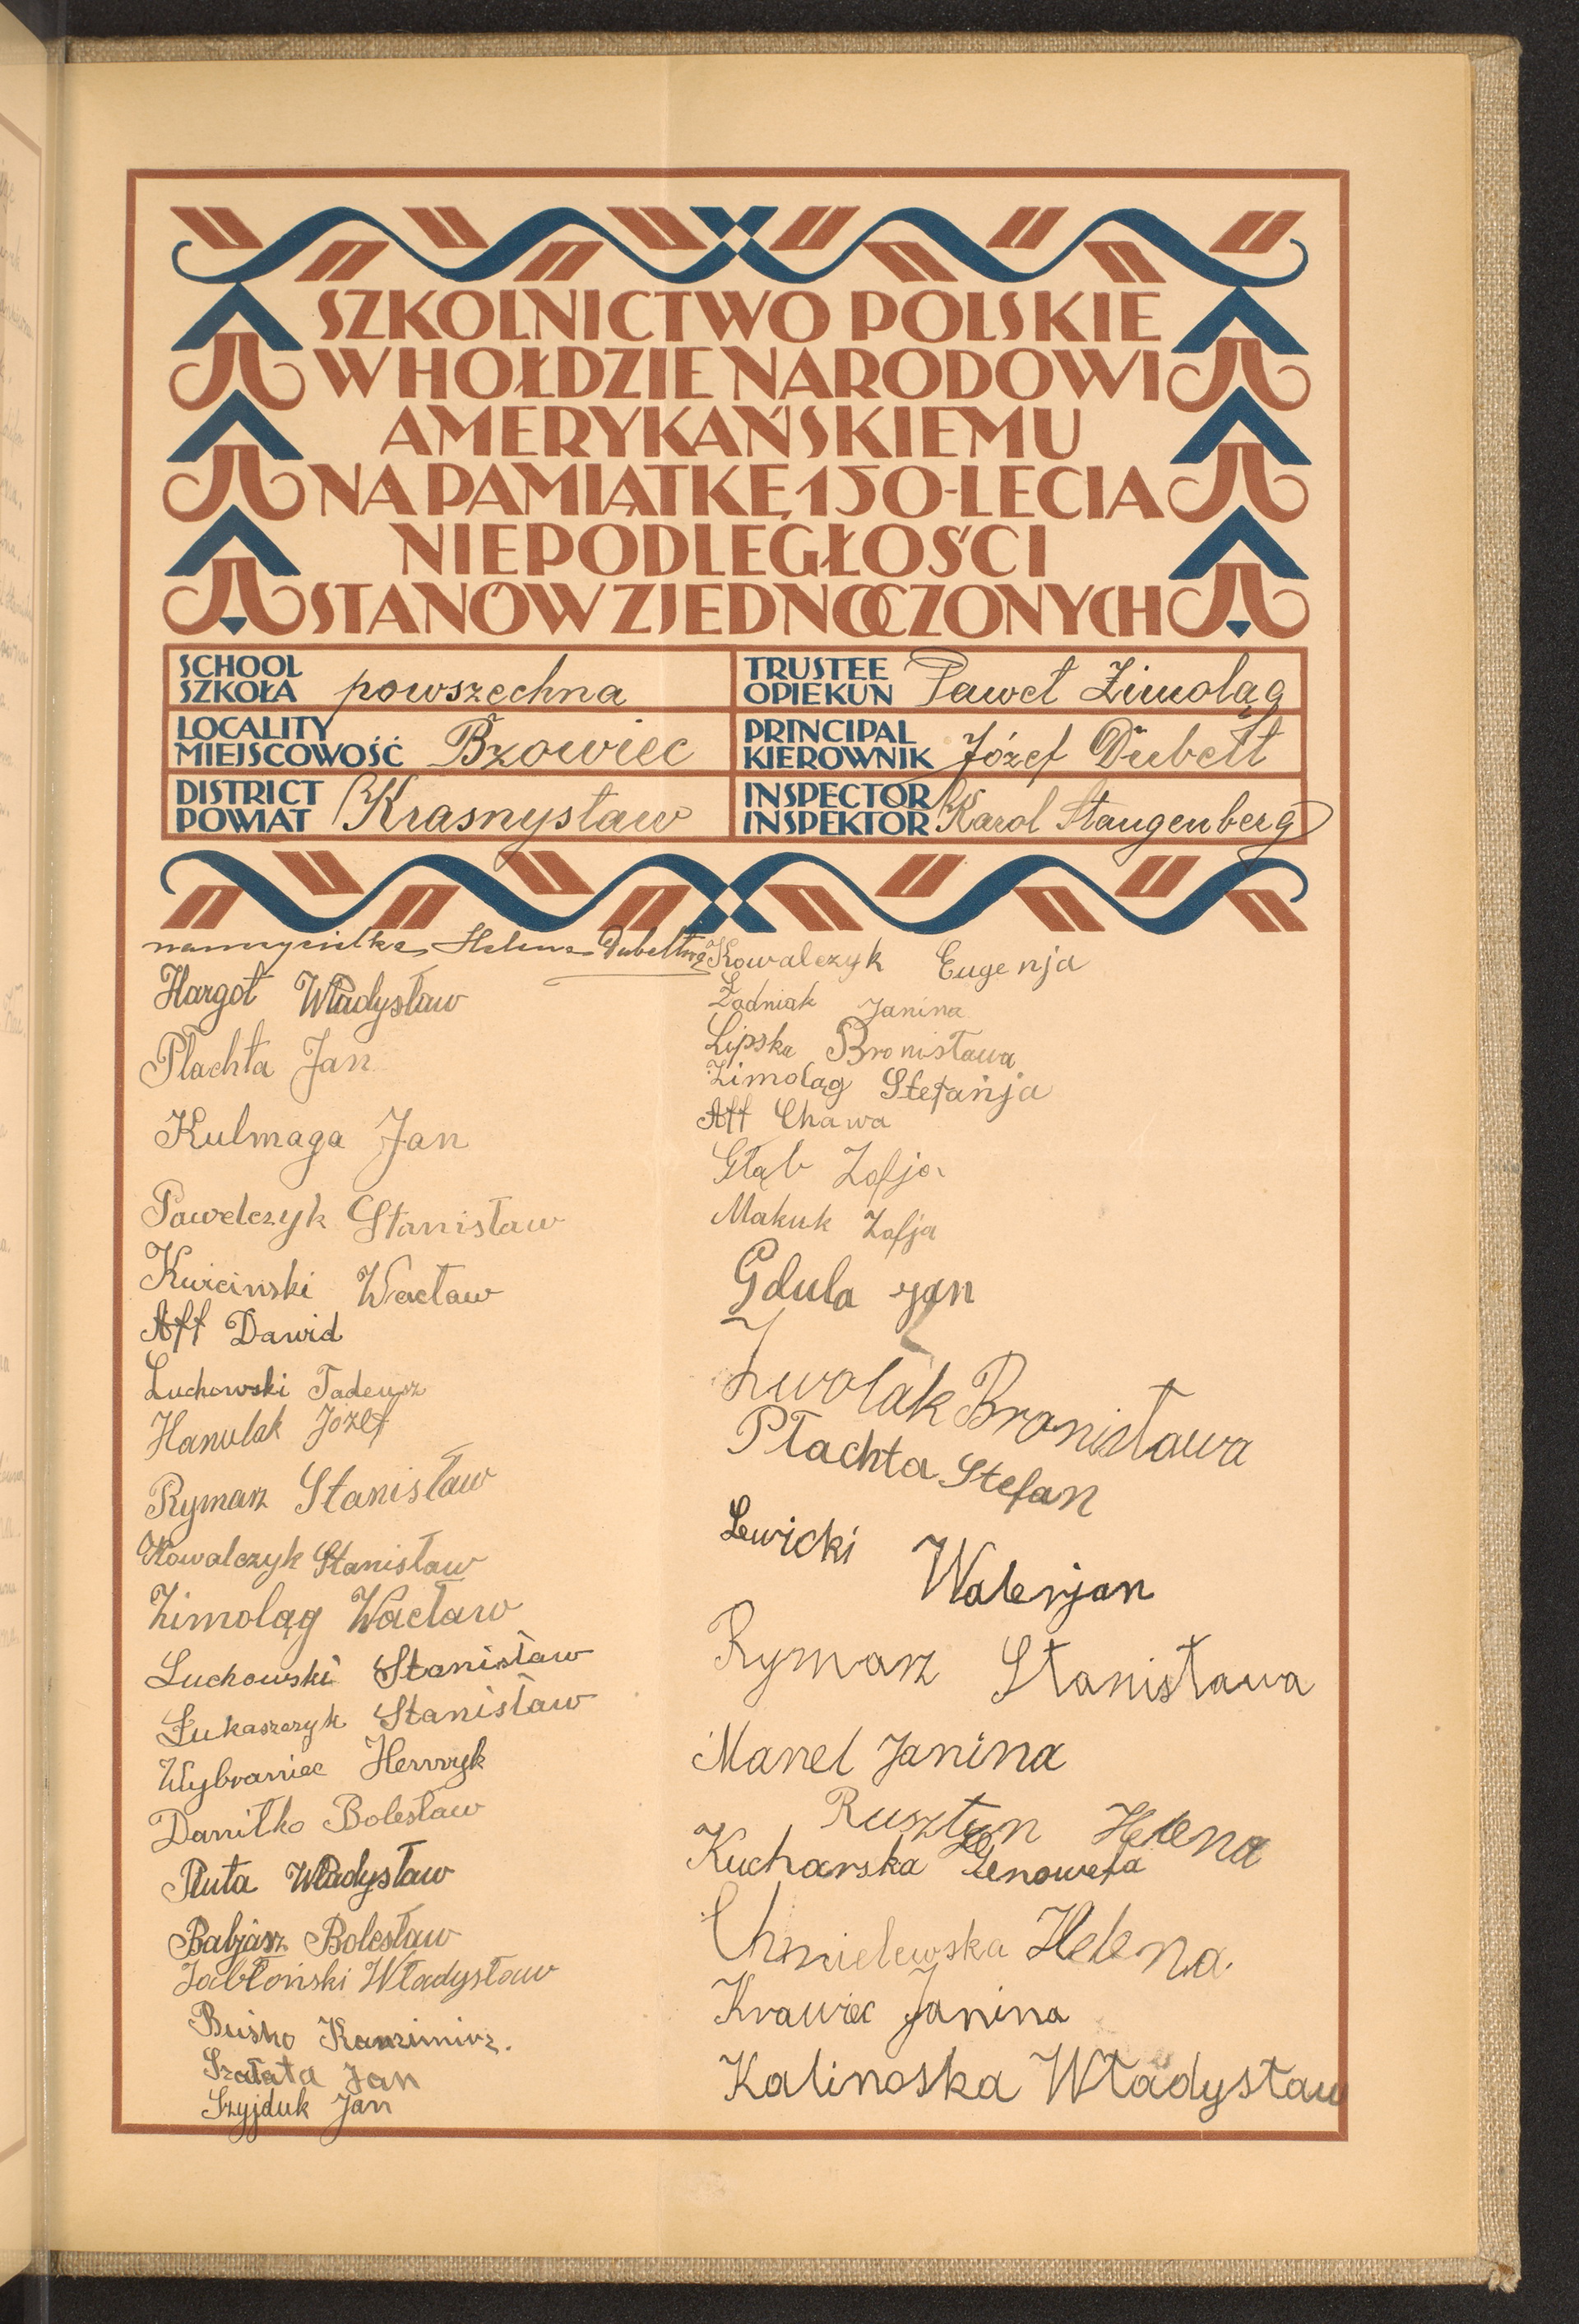 SZKOLNICTWO POLSKIE
W HOŁDZIE NARODOWI
AMERYKAŃSKIEMU
NA PAMIĄTKĘ 150-LECIA
NIEPODLEGŁOŚCI
STANÓW ZJEDNOCZONYCH
SCHOOL
SZKOŁA powszechna
TRUSTEE
OPIEKUN Paweł Zimoląg
LOCALITY
MIEJSCOWOŚĆ Bzowiec
PRINCIPAL
KIEROWNIK Józef Dubelt
DISTRICT
POWIAT Krasnystaw
INSPECTOR
INSPEKTOR Karol Stangenberg
nauczycielka Helena
Hargot Władysław
Płachta Jan
Kulmaga Jan
Pawelczyk Stanisław
Kwiciński Wacław
Aff Dawid
Luchowski Tadeusz
Hanulak Józef
Rymarz Stanisław
Kowalczyk Stanisław
Zimoląg Wacław
Luchowski Stanisław
Łukaszczyk Stanisław
Wybraniec Henryk
Daniłko Bolesław
Pluta Władysław
Babjasz Bolesław
Jabłoński Władysław
Buśko
Szałata Jan
Szyjduk Jan
Kowalczyk Eugenja
Żodniak Janina
Lipska Bronisława
Zimoląg Stefanja
Aff Chawa
Głąb Zofja
Makuk Zofja
Gdula Jan
Zwolak Bronisława
Płachta Stefan
Lewicki Walerjan
Rymarz Stanisława
Manel Janina
Rusztyn Helena
Kucharska Genowefa
Chmielewska Helena.
Krawiec Janina
Kalinoska Władysław